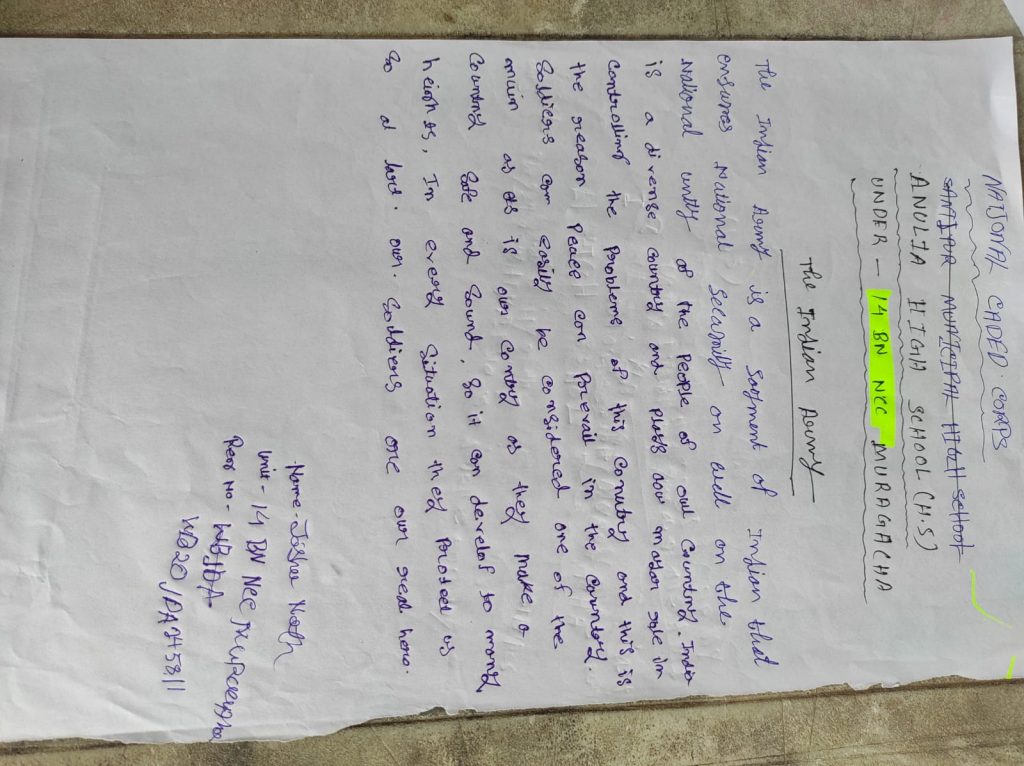 NATIONAL CADED CORPS
SANTIPUR MUNICIPAL HIGH SCHOOL
ANULIA HIGH SCHOOL (H.S)
UNDER - 14 BN NCC MURAGACHA
The Indian Army
The Indian Army is a sagment of Indian that
ensures National Security on well on the
National unity of the people of our Country. India
is a diverse country and plass aov mayor role in
Controlling the Problems of this Conutry and this is
the reason Peace can Prevail in the Country.
Soldiers can easily be considered one of the
main as its is our Contry as they make a
Country Safe and Sound, So it can develop to many
heights, In every Situation they
So a lord. our. Soldiers are our real hero.
Name-
Unit - 14 BN NCC
Regg No -
WB20